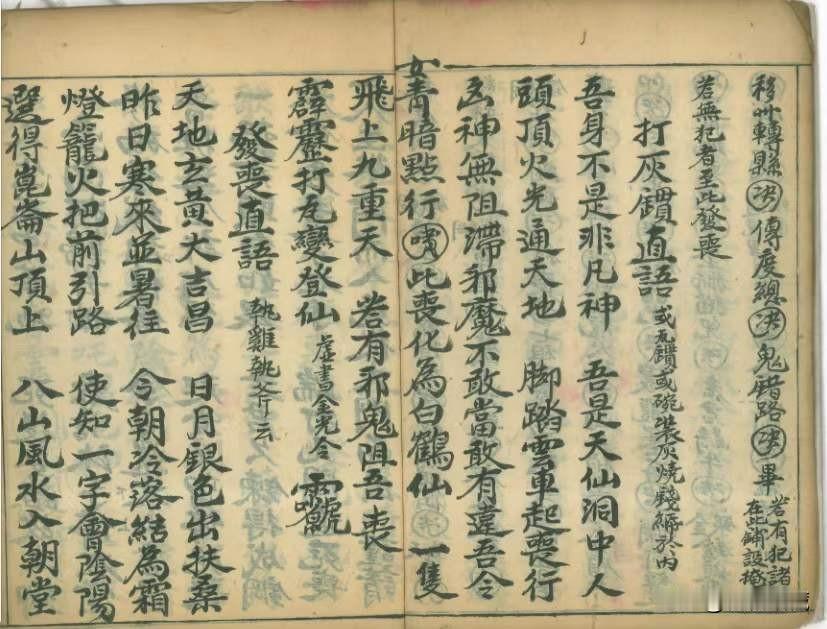 移州轉縣決傳度總決鬼錯路決畢 若有犯諸在此鋪設掩
若無犯者至此發喪
打灰鑵直語 或瓦鑵或碗裝灰燒錢紙於內
吾身不是非凡神 吾是天仙洞中人
頭頂火光通天地 脚踏雲車起喪行
凶神無阻滯邪魔不敢當敢有違吾令
女青暗點行 此喪化為白鶴仙 一隻
飛上九重天 若有邪鬼阻吾喪
霹靂打瓦變登仙 虛書金光令
發喪直語 執雞執斧云
天地玄黃大吉昌 日月銀色出扶桑
昨日寒來並暑往 今朝冷落結為霜
燈籠火把前引路 使知一字會陰陽
選得崑崙山頂上 八山風水入朝堂